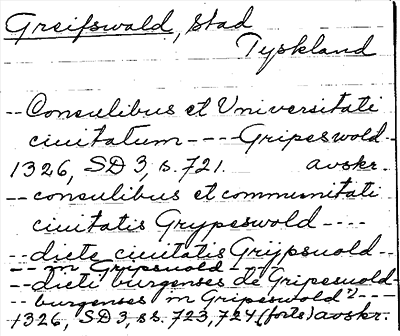 Greifswald, stad
Tyskland
-- Consulibus et Universitati
ciuitatum ---- Gripeswold
1326, SD 3, s. 721. avskr.
-- consulibus et communitati
ciuitatis Grypeswold ----
-- dicte ciuitatis Grijpsuold --
-- in Gripsuold ----
-- dicti burgenses de Gripesuold --
-- burgenses in Gripeswold 2) ----
1326, SD 3, ss. 723, 724 (forts) avskr.